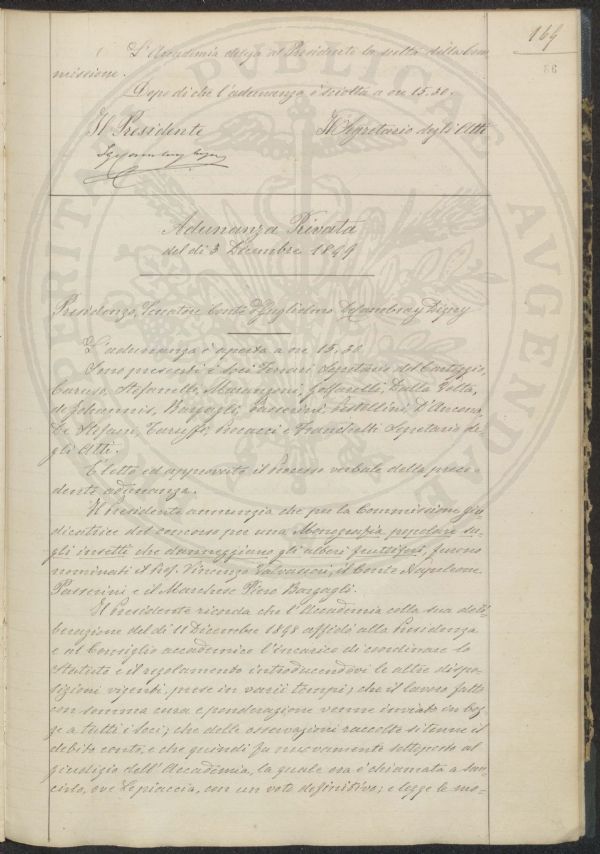 169
33
L'Accademia delega al Presidente la scelta della Com
missione.
Dopo di che l'adunanza è sciolta a ore 15.30.
Il Presidente Il Segretario degli Atti
Adunanza Privata
del dì 3 Dicembre 1899
Presidenza, Senatore Conte Guglielmo De Cambray Digny
L'adunanza è aperta a ore 15,30
Sono presenti i Soci Ferrari Segretario del Carteggio,
Caruso, Stefanelli, Marangoni, Dalla Volta,
de Johannis, Bargagli, Passerini, Pestellini, D'Ancona,
De Stefani, Taruffi, e Franchetti Segretario de
gli Atti.
È letto ed approvato il Processo verbale della prece-
dente adunanza.
Il Presidente annunzia che per la Commissione giu
dicatrice del concorso per una Monografia popolare su-
gli insetti che danneggiano gli alberi fruttiferi, furono
nominati il Prof. Vincenzo Valvassori, il Conte Napoleone
Passerini e il Marchese Piero Bargagli.
Il Presidente ricorda che l'Accademia colla sua deli
berazione del dì 11 Dicembre 1898 affidò alla Presidenza
e al Consiglio accademico l'incarico di coordinare lo
Statuto e il regolamento introducendovi le altre dispo-
sizioni vigenti, prese in varii tempi; che il lavoro fatto
con somma cura e ponderazione venne inviato in boz
ze a tutti i Soci; che delle osservazioni raccolte si tenne il
debito conto, e che quindi fu nuovamente sottoposto al
giudizio dell'Accademia, la quale ora è chiamata a san-
cirlo, ove le piaccia, con un voto definitivo; e legge le mo-
PUBLICAE
AUGENDAE